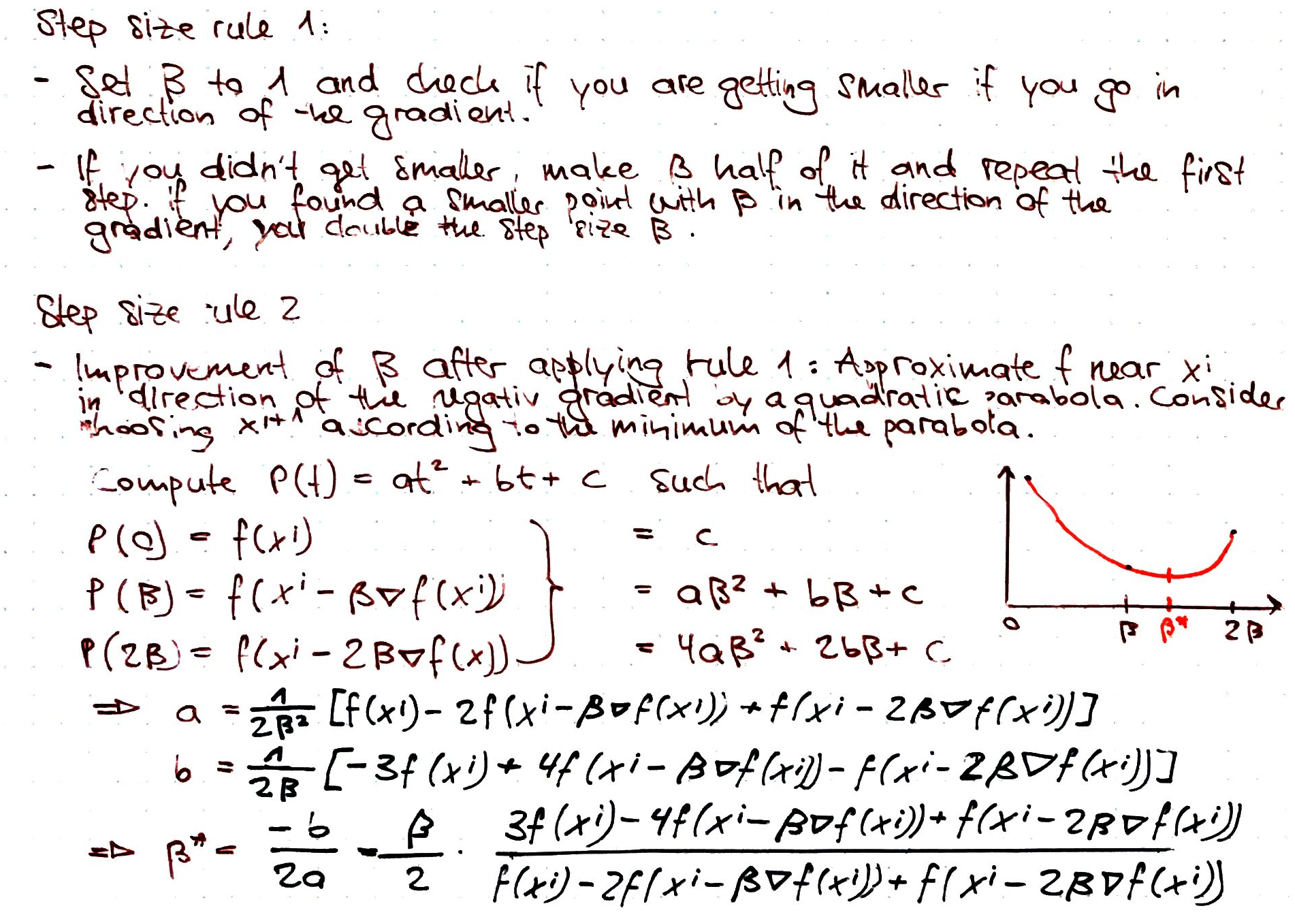 Step size rule 1:
- Set β to 1 and check if you are getting smaller if you go in
direction of the gradient.
- If you didn't get smaller, make β half of it and repeat the first
step. if you found a smaller point with β in the direction of the
gradient, you double the step size β.
Step size rule 2
- Improvement of β after applying rule 1: Approximate f near xⁱ
in direction of the negativ gradient by a quadratic parabola. Consider
choosing xⁱ⁺¹ according to the minimum of the parabola.
Compute P(t) = at² + bt + c such that
P(0) = f(xⁱ) = c
P(β) = f(xⁱ - β∇f(xⁱ)) = aβ² + bβ + c
P(2β) = f(xⁱ - 2β∇f(x)) = 4aβ² + 2bβ + c
0 β β* 2β
⇒ a = 1/2β² [f(xⁱ) - 2f(xⁱ - β∇f(xⁱ)) + f(xⁱ - 2β∇f(xⁱ))]
b = 1/2β [-3f(xⁱ) + 4f(xⁱ - β∇f(xⁱ)) - f(xⁱ - 2β∇f(xⁱ))]
⇒ β* = -b/2a = β/2 · 3f(xⁱ) - 4f(xⁱ - β∇f(xⁱ)) + f(xⁱ - 2β∇f(xⁱ)) / f(xⁱ) - 2f(xⁱ - β∇f(xⁱ)) + f(xⁱ - 2β∇f(xⁱ))